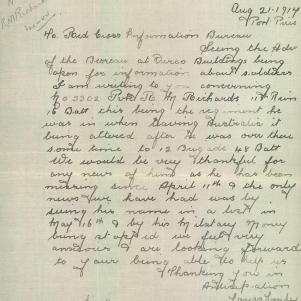 R M Richards
Aug 21. 1917
Port Pirie
To Red Cross Information Bureau
Seeing the Adv
of the Bureau at Verco Buildings being
open for information about soldiers
I am writing to you concerning
No 3302 Pvte Richards
16 Batt this being the regiment he
was in when leaving Australia it
being altered after he was over there
some time to 12 Brigade 48 Batt
We would be very thankful for
any news of him as he has been
missing since April 11th & the only
news we have had was by
seeing his name in a list in
May 16th & by his Military Money
being stopped we feel very
anxious & are looking forward
to your being able to help us
Thanking you in
Anticipation